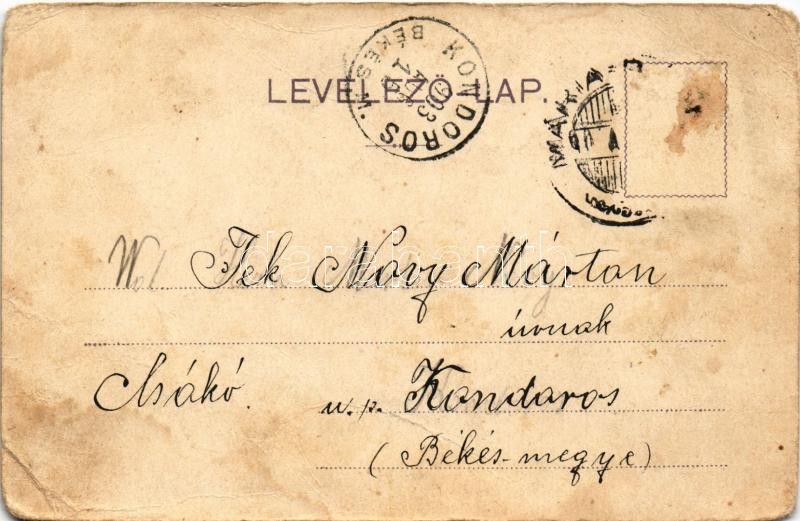 LEVELEZŐ-LAP.
KONDOROS
BÉKÉS M.
903
Tek Novy Márton
úrnak
Csákó.
u. p. Kondaros
(Békés-megye)
darabanth